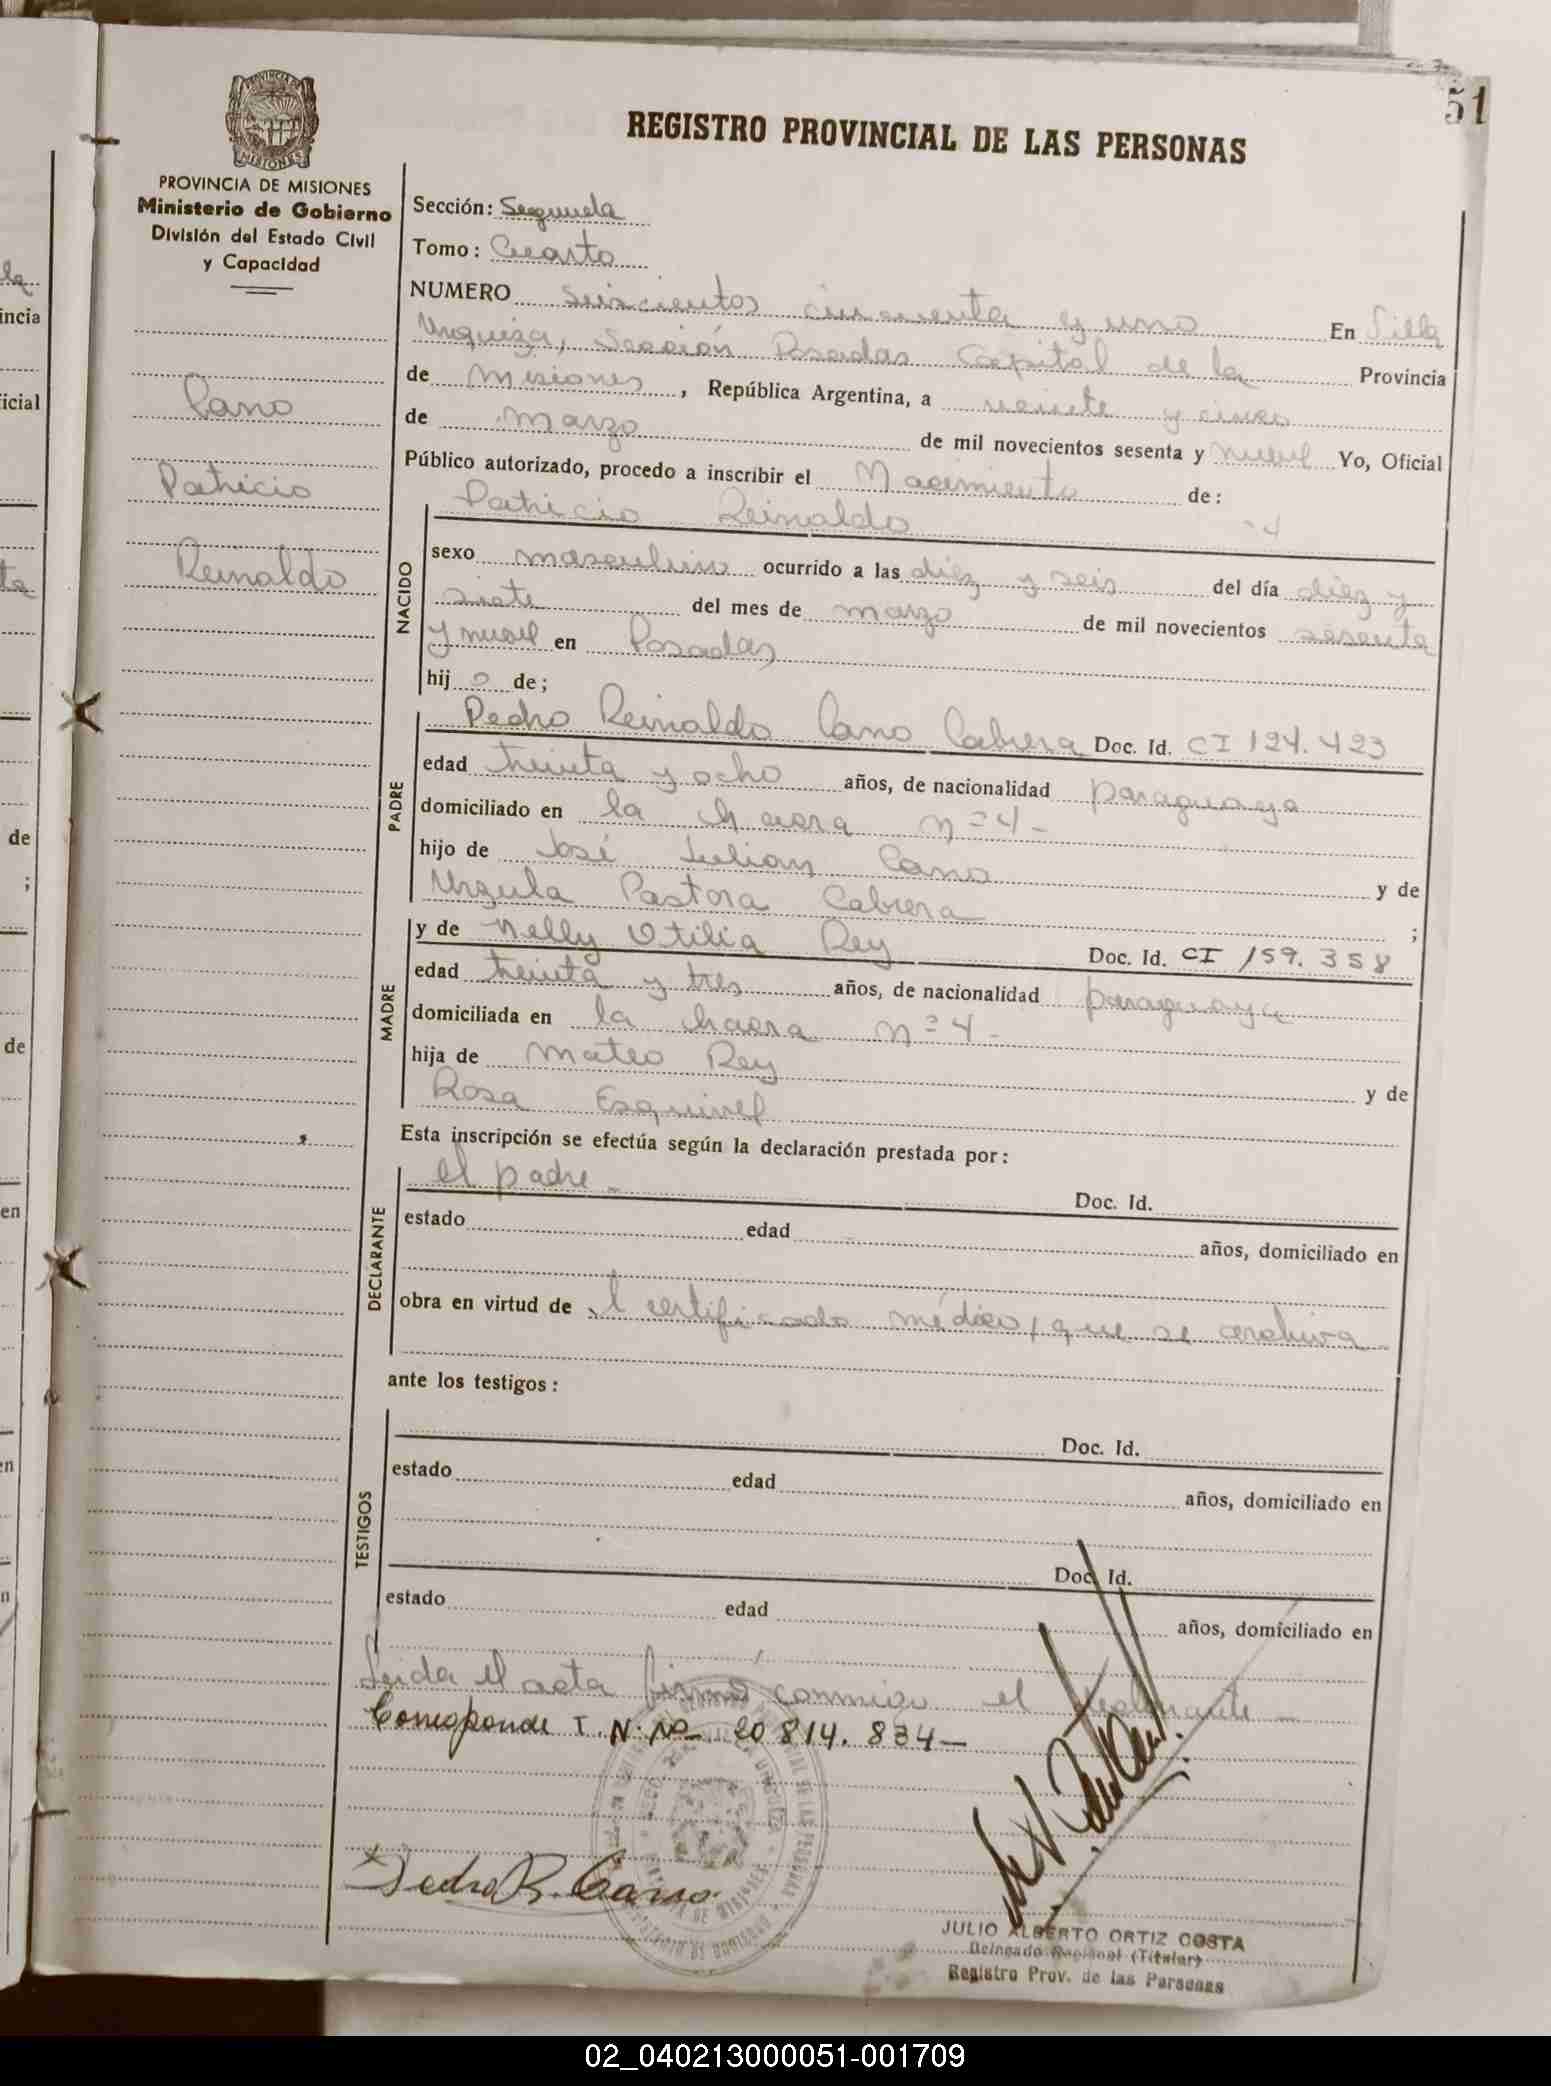 51
PROVINCIA DE MISIONES
Ministerio de Gobierno
División del Estado Civil
y Capacidad
REGISTRO PROVINCIAL DE LAS PERSONAS
Sección: Segunda
Tomo: Cuarto
NUMERO seiscientos cincuenta y uno En Villa
Urquiza, Sección Posadas Capital de la Provincia
de Misiones, República Argentina, a veinte y cinco
de marzo de mil novecientos sesenta y nueve Yo, Oficial
Público autorizado, procedo a inscribir el Nacimiento de:
Cano
Patricio
Reinaldo
NACIDO
Patricio Reinaldo
sexo masculino ocurrido a las diez y seis del día diez y
siete del mes de marzo de mil novecientos sesenta
y nueve en Posadas
hijo de;
PADRE
Pedro Reinaldo Cano Cabrera Doc. Id. CI 124.423
edad treinta y ocho años, de nacionalidad paraguaya
domiciliado en la chacra nº 4-
hijo de José Julian Cano y de
Urzula Pastora Cabrera ;
MADRE
y de Nelly Otilia Rey Doc. Id. CI 159.358
edad treinta y tres años, de nacionalidad paraguaya
domiciliada en la chacra nº 4-
hija de Mateo Rey y de
Rosa Esquivel
Esta inscripción se efectúa según la declaración prestada por:
DECLARANTE
el padre - Doc. Id.
estado edad años, domiciliado en
obra en virtud de l certificado médico, que se archiva
ante los testigos:
TESTIGOS
Doc. Id.
estado edad años, domiciliado en
Doc. Id.
estado edad años, domiciliado en
Leida el acta firma conmigo el declarante -
Corresponde I. N. Nº 20814.834-
Pedro R. Cano.
JULIO ALBERTO ORTIZ COSTA
Delegado Regional (Titular)
Registro Prov. de las Personas
02_040213000051-001709